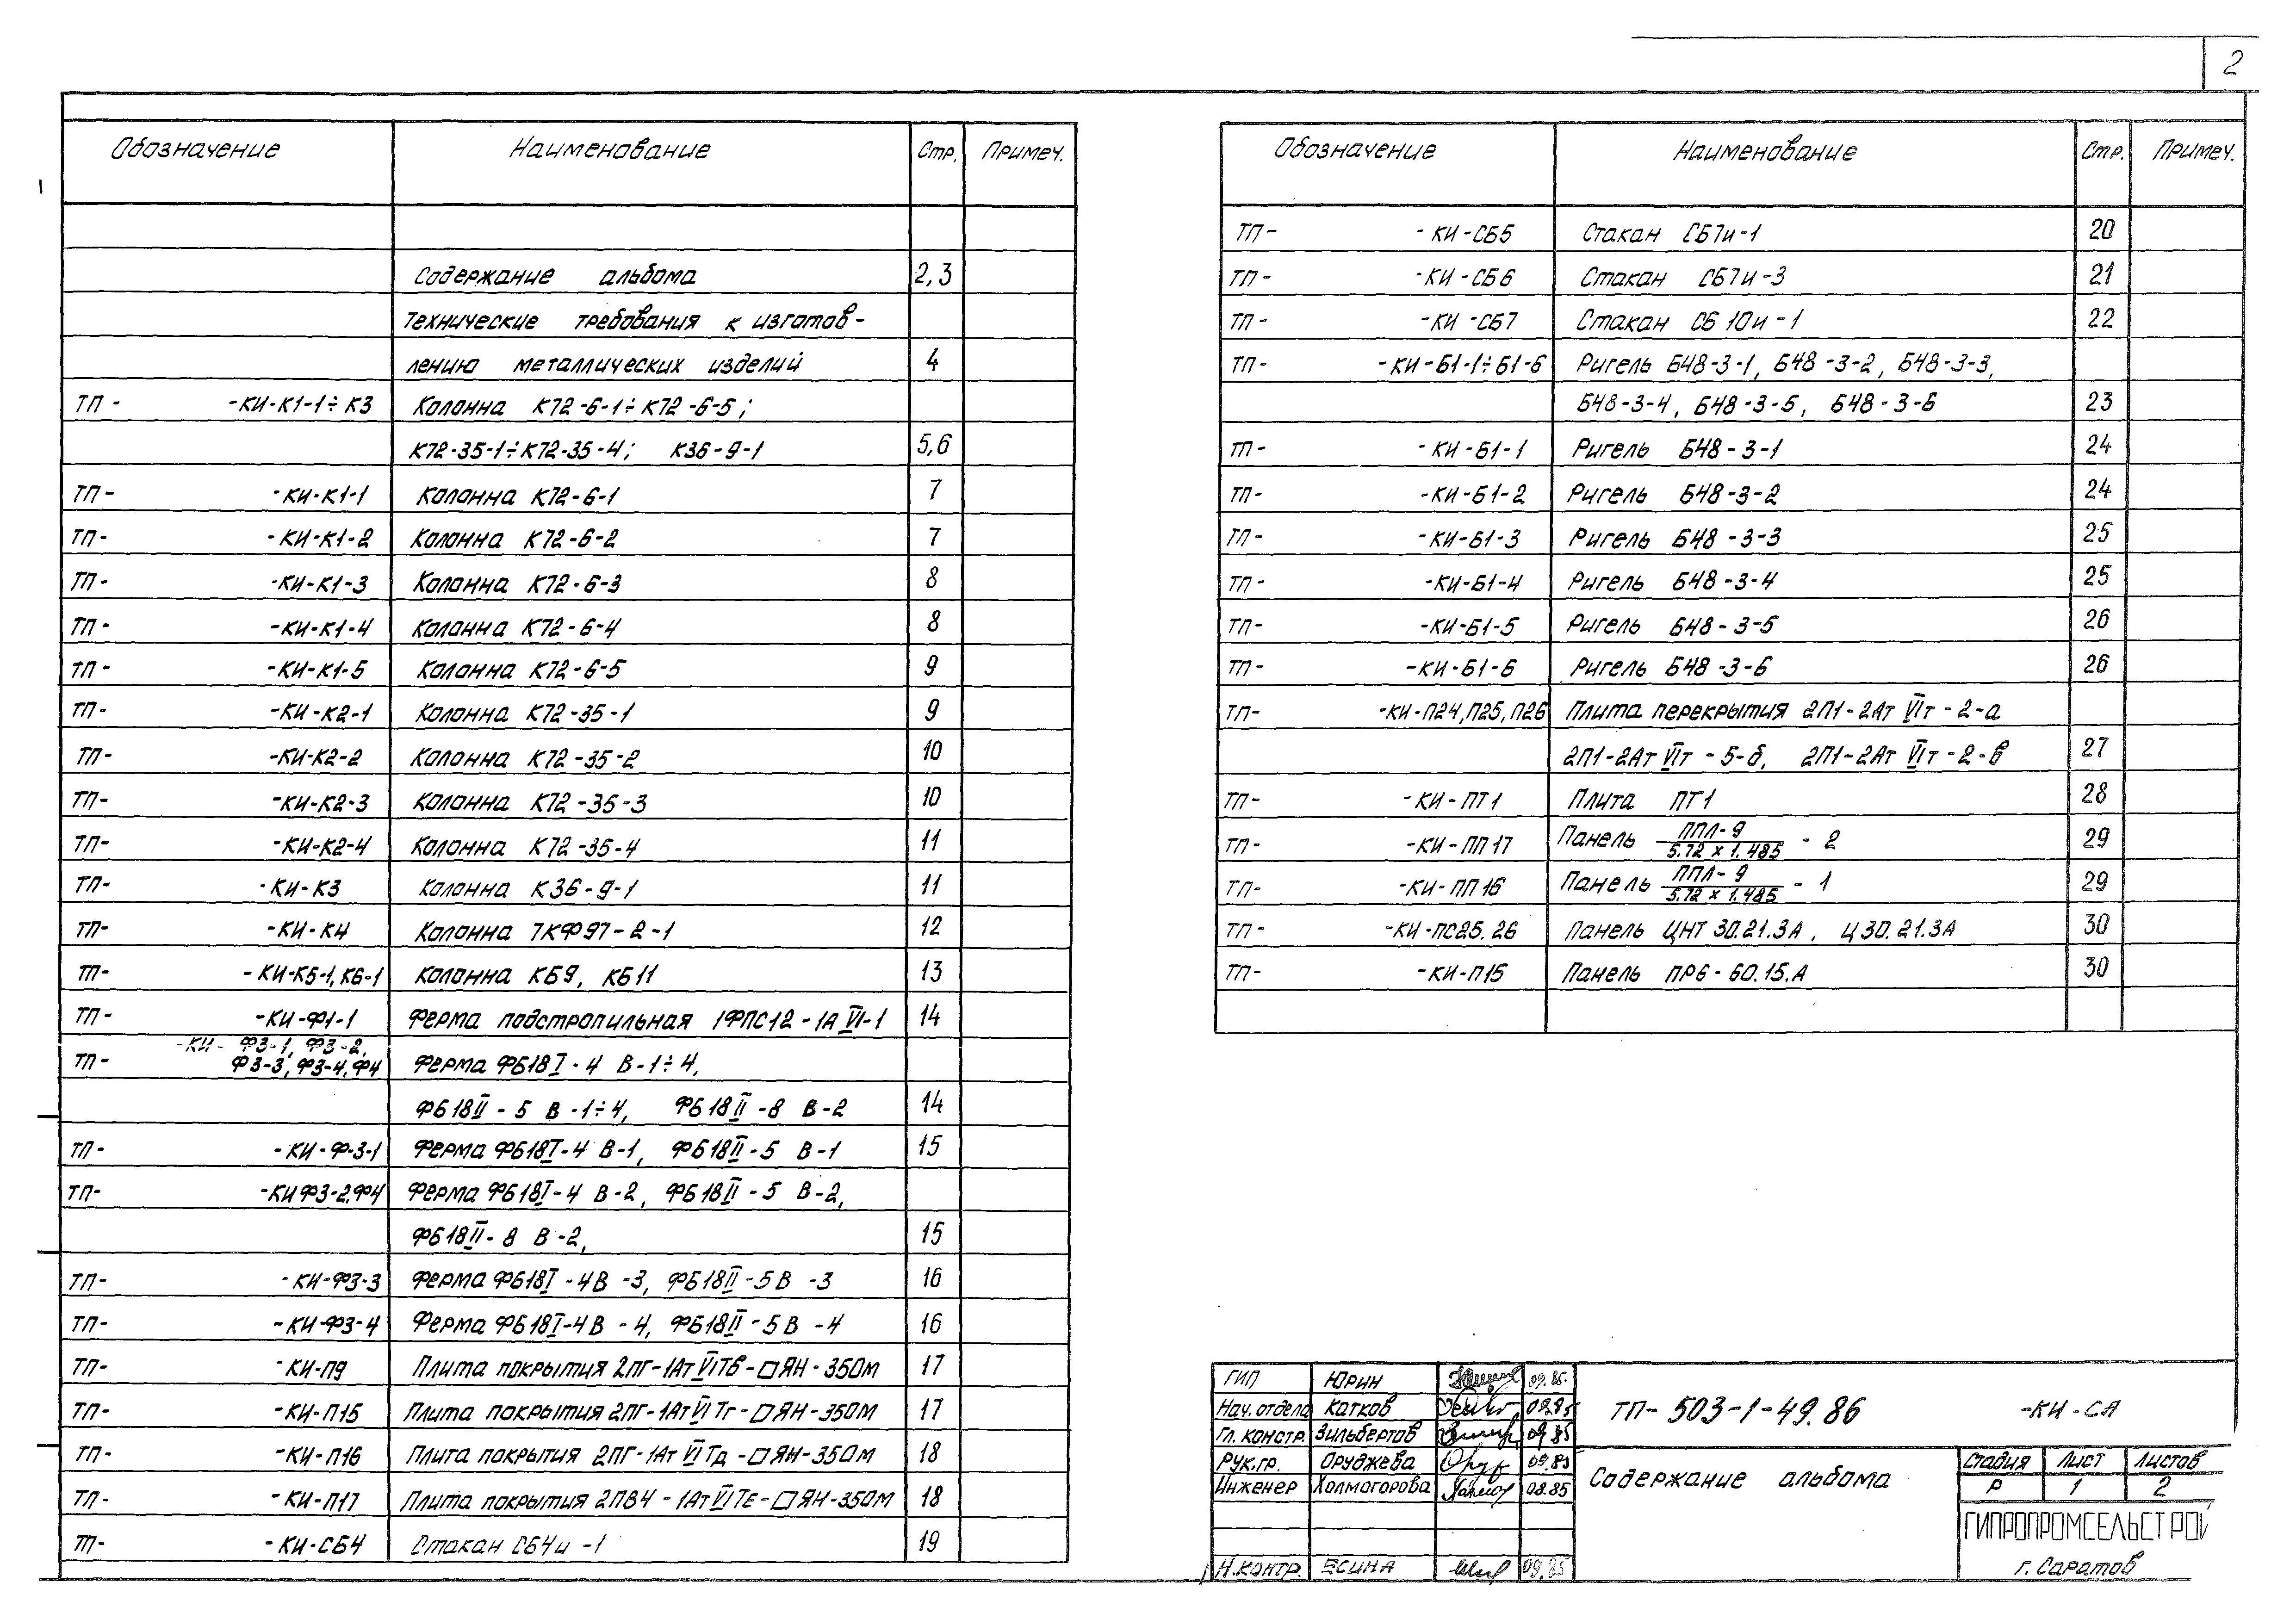 2
Обозначение Наименование Стр. Примеч.
Содержание альбома 2,3
Технические требования к изготов-
лению металлических изделий 4
ТП- -КИ-К1-1÷К3 Колонна К72-6-1÷К72-6-5;
К72-35-1÷К72-35-4; К36-9-1 5,6
ТП- -КИ-К1-1 Колонна К72-6-1 7
ТП- -КИ-К1-2 Колонна К72-6-2 7
ТП- -КИ-К1-3 Колонна К72-6-3 8
ТП- -КИ-К1-4 Колонна К72-6-4 8
ТП- -КИ-К1-5 Колонна К72-6-5 9
ТП- -КИ-К2-1 Колонна К72-35-1 9
ТП- -КИ-К2-2 Колонна К72-35-2 10
ТП- -КИ-К2-3 Колонна К72-35-3 10
ТП- -КИ-К2-4 Колонна К72-35-4 11
ТП- -КИ-К3 Колонна К36-9-1 11
ТП- -КИ-К4 Колонна 7КФ97-2-1 12
ТП- -КИ-К5-1, К6-1 Колонна КБ9, КБ11 13
ТП- -КИ-Ф1-1 Ферма подстропильная 1ФПС12-1А VI-1 14
-КИ- Ф3-1, Ф3-2,
ТП- Ф3-3, Ф3-4, Ф4 Ферма ФБ18 I-4 В-1÷4,
ФБ18 II-5 В-1÷4, ФБ18 II-8 В-2 14
ТП- -КИ-Ф-3-1 Ферма ФБ18 I-4 В-1, ФБ18 II-5 В-1 15
ТП- -КИ Ф3-2, Ф4 Ферма ФБ18 I-4 В-2, ФБ18 II-5 В-2,
ФБ18 II-8 В-2, 15
ТП- -КИ-Ф3-3 Ферма ФБ18 I-4В-3, ФБ18 II-5В-3 16
ТП- -КИ-Ф3-4 Ферма ФБ18 I-4В-4, ФБ18 II-5В-4 16
ТП- -КИ-П9 Плита покрытия 2ПГ-1Ат VI Тв-□ЯН-350М 17
ТП- -КИ-П15 Плита покрытия 2ПГ-1Ат VI Тг-□ЯН-350М 17
ТП- -КИ-П16 Плита покрытия 2ПГ-1Ат VI Тд-□ЯН-350М 18
ТП- -КИ-П17 Плита покрытия 2ПВ4-1Ат VI ТЕ-□ЯН-350М 18
ТП- -КИ-СБ4 Стакан СБ4и-1 19
Обозначение Наименование Стр. Примеч.
ТП- -КИ-СБ5 Стакан СБ7и-1 20
ТП- -КИ-СБ6 Стакан СБ7и-3 21
ТП- -КИ-СБ7 Стакан СБ 10и-1 22
ТП- -КИ-Б1-1÷Б1-6 Ригель Б48-3-1, Б48-3-2, Б48-3-3,
Б48-3-4, Б48-3-5, Б48-3-6 23
ТП- -КИ-Б1-1 Ригель Б48-3-1 24
ТП- -КИ-Б1-2 Ригель Б48-3-2 24
ТП- -КИ-Б1-3 Ригель Б48-3-3 25
ТП- -КИ-Б1-4 Ригель Б48-3-4 25
ТП- -КИ-Б1-5 Ригель Б48-3-5 26
ТП- -КИ-Б1-6 Ригель Б48-3-6 26
ТП- -КИ-П24, П25, П26 Плита перекрытия 2П1-2Ат VIт-2-а
2П1-2Ат VIт-5-б, 2П1-2Ат VIт-2-в 27
ТП- -КИ-ПТ1 Плита ПТ1 28
ТП- -КИ-ПП17 Панель ППЛ-9 / 5.72 х 1.485 - 2 29
ТП- -КИ-ПП16 Панель ППЛ-9 / 5.72 х 1.485 - 1 29
ТП- -КИ-ПС25.26 Панель ЦНТ 30.21.3А, Ц30.21.3А 30
ТП- -КИ-П15 Панель ПР6-60.15.А 30
ГИП Юрин 09.85.
Нач. отдела Катков 09.85
Гл. констр. Зильбертов 09.85
Рук.гр. Оруджева 09.85
Инженер Холмогорова 09.85
Н.контр. Есина 09.85
ТП-503-1-49.86 -КИ-СА
Содержание альбома
Стадия Лист Листов
Р 1 2
ГИПРОПРОМСЕЛЬСТРОЙ
г. Саратов